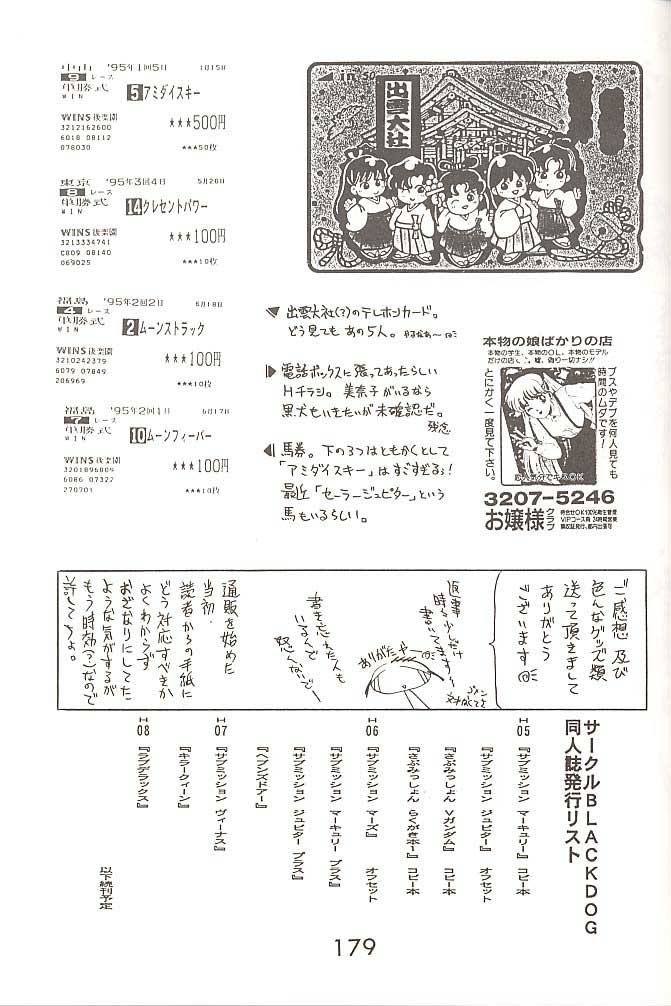 中山 '95年1回5日 1月15日
9 レース
単勝式 5 アミダイスキー
WIN
WINS後楽園 ★★★500円
3212162600
6018 08112
078030 ★★★50枚
東京 '95年3回4日 5月28日
8 レース
単勝式 14 クレセントパワー
WIN
WINS後楽園 ★★★100円
3213334741
C809 08140
069025 ★★★10枚
福島 '95年2回2日 6月18日
4 レース
単勝式 2 ムーンストラック
WIN
WINS後楽園 ★★★100円
3210242379
6079 07849
206969 ★★★10枚
福島 '95年2回1日 6月17日
7 レース
単勝式 10 ムーンフィーバー
WIN
WINS後楽園 ★★★100円
3201896809
6086 07322
270701 ★★★10枚
50
出雲大社
出雲大社(?)のテレホンカード。
どう見てもあの5人。
電話ボックスに張ってあったらしい
Hチラシ。美奈子がいるなら
黒犬もいきたいが未確認だ。
残念
馬券。下の3つはともかくとして
「アミダイスキー」はすごすぎる!
最近「セーラージュピター」という
馬もいるらしい。
本物の娘ばかりの店
本物の学生、本物のOL、本物のモデル
だけの店く。嘘、偽り一切ナシ!!
ブスやデブを何人見ても
時間のムダです!
とにかく一度見て下さい。
3207-5246
お嬢様クラブ
ご感想 及び
色んなグッズ類
送って頂きまして
ありがとう
ございます
返事
ありがたや
書き忘れた人も
いるくで
怒くないでー
通販を始めた
当初、
読者からの手紙に
どう対応すべきか
よくわからず
おざなりにしてた
ような気がするが
もう時効(?)なので
許してちょ。
サークルBLACKDOG
同人誌発行リスト
H05 『サブミッション マーキュリー』 コピー本
『サブミッション ジュピター』 オフセット
『さぶみっしょん Vガンダム』 コピー本
『さぶみっしょん らくがきホー1』 コピー本
H06 『サブミッション マーズ』 オフセット
『サブミッション マーキュリー プラス』
『サブミッション ジュピター プラス』
『ヘブンズドアー』
H07 『サブミッション ヴィーナス』
『キラークィーン』
H08 『ラブデラックス』
以下続刊予定
179